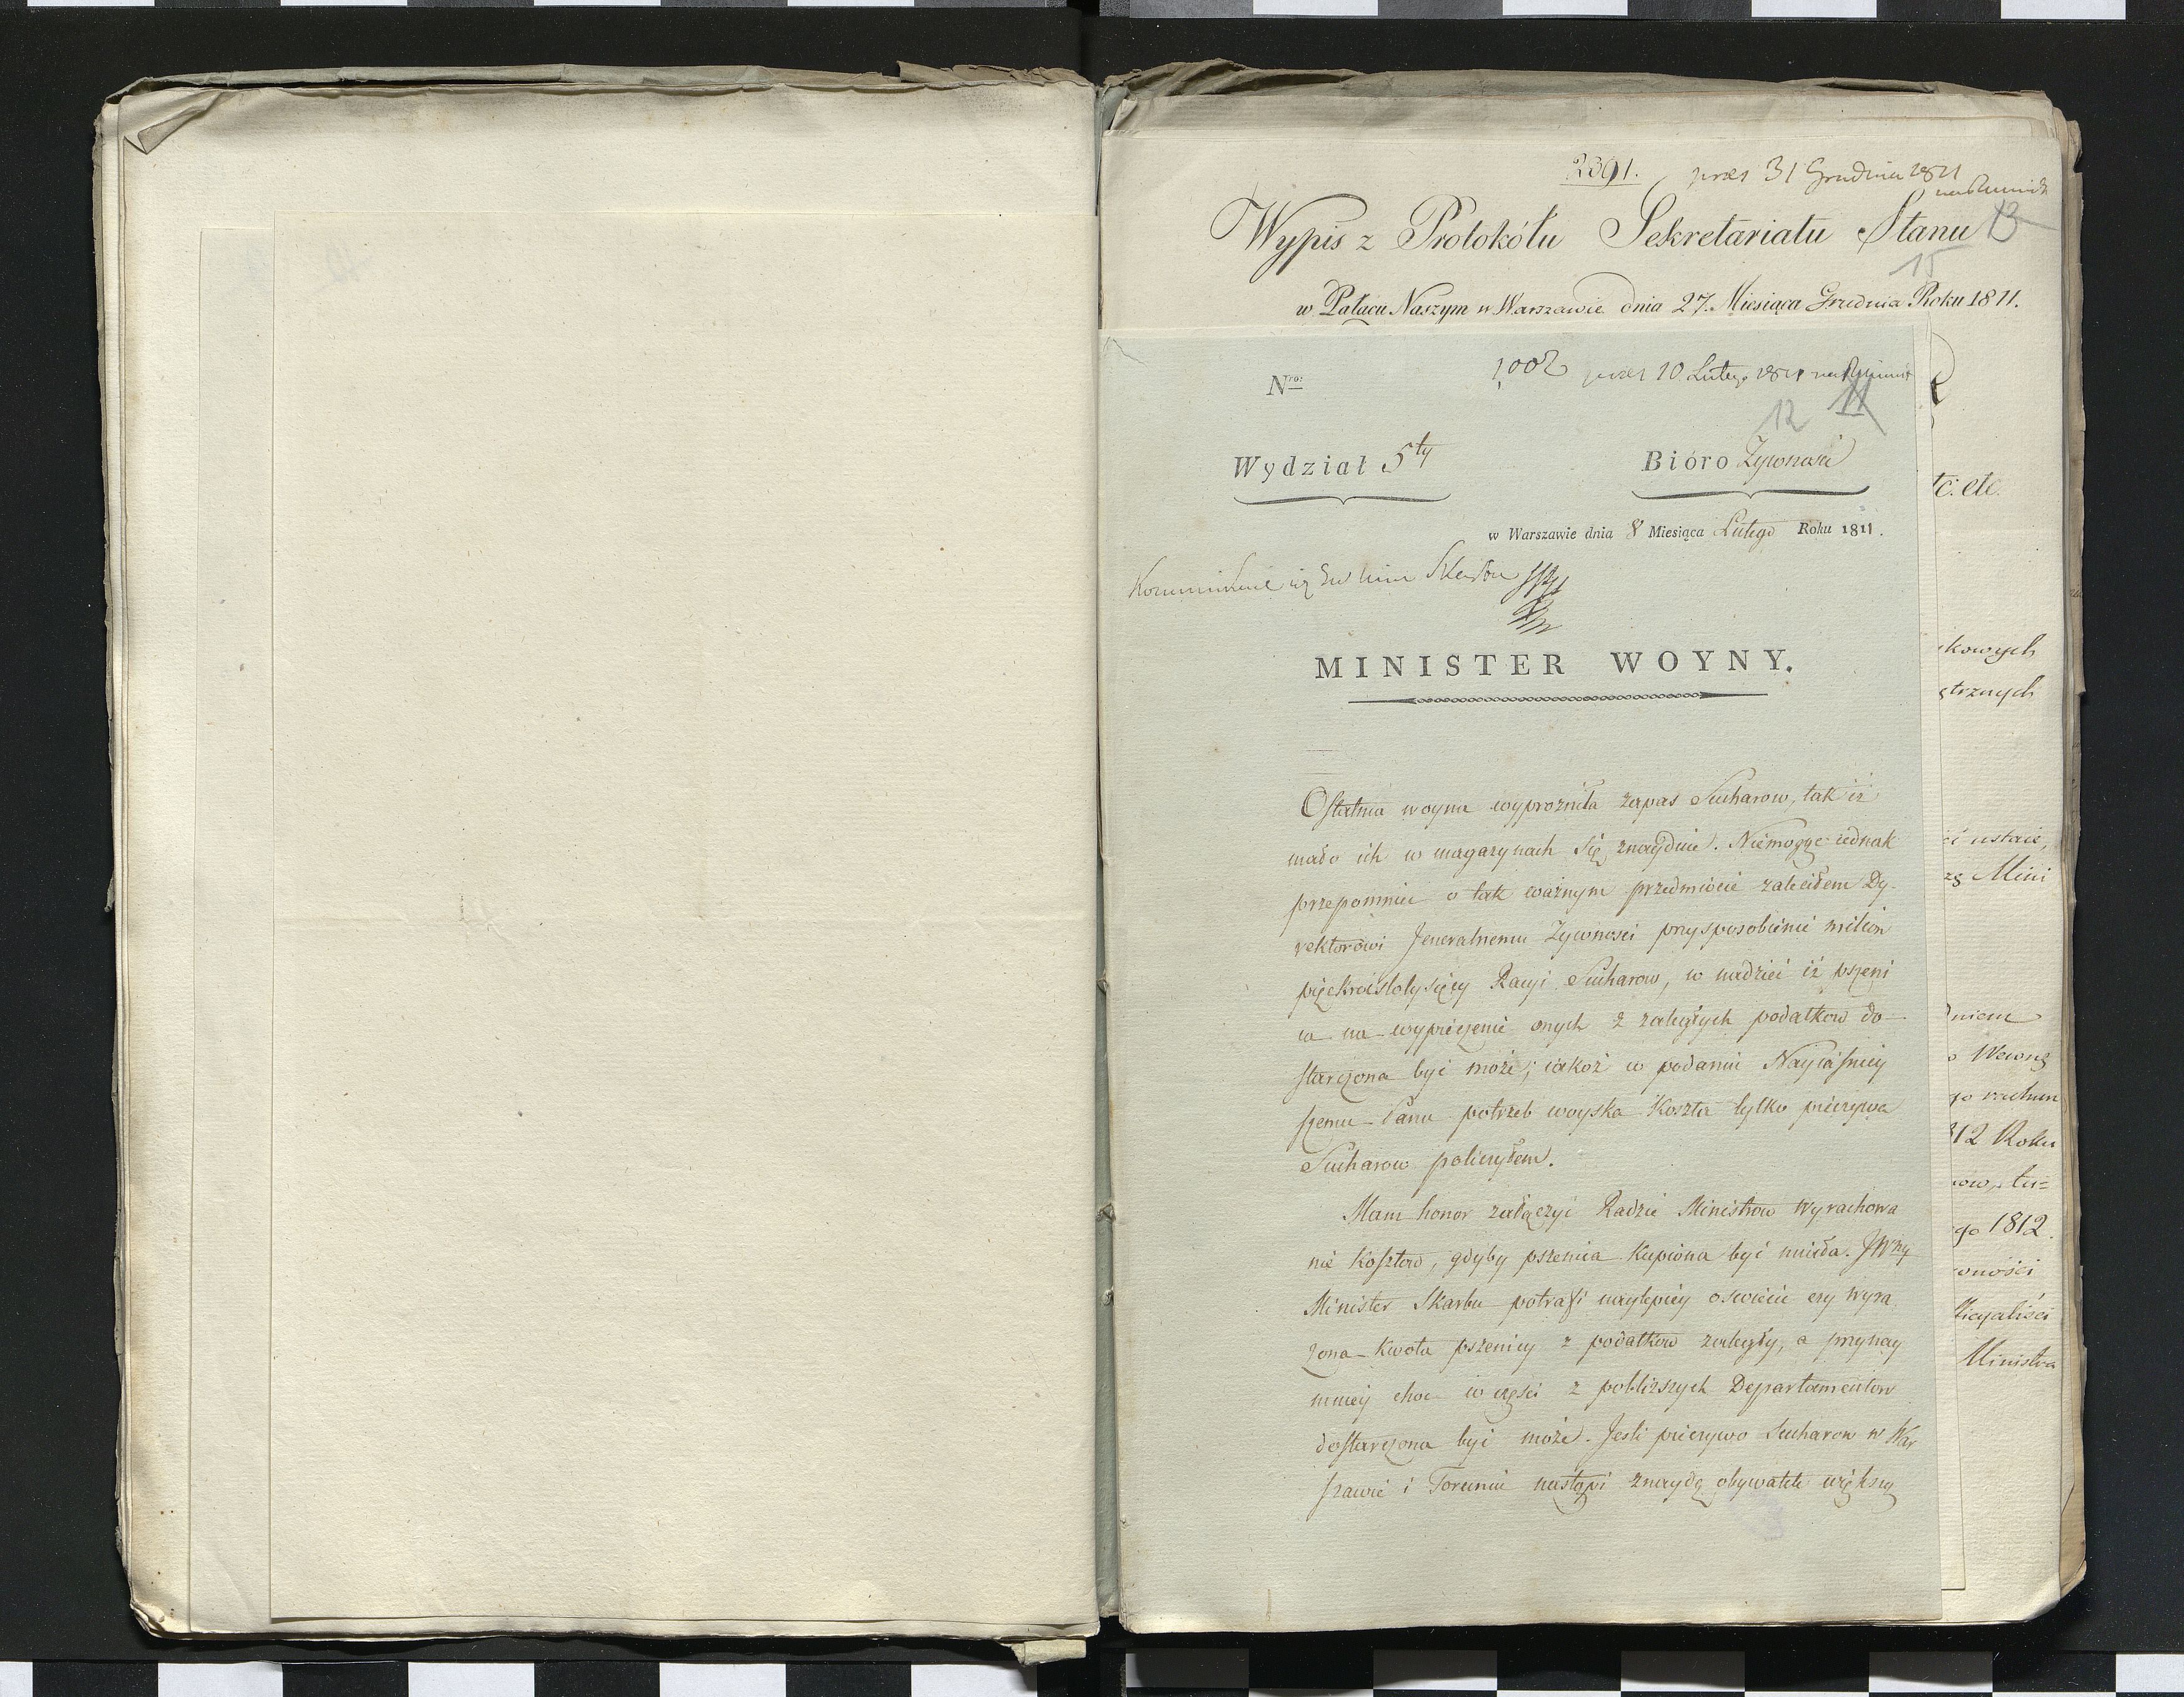 2391. prez 31 Grudnia 1811
Wypis z Protokółu Sekretariatu Stanu 13
15
w Pałacu Naszym w Warszawie dnia 27. Miesiąca Grudnia Roku 1811.
Nro: 1002 prez 10 Lutego 1811
12 11
Wydział 5ty Bióro Zywnosci
tc. etc.
w Warszawie dnia 8 Miesiąca Lutego Roku 1811.
Skarbu
MINISTER WOYNY.
kowych
trznych
Ostatnia woyna wyprozniła zapas Sucharow, tak iż
mało ich w magazynach się znayduie. Niemogąc iednak
przepomnieć o tak ważnym przedmiocie zaleciłem Dy-
rektorowi Jeneralnemu Zywnosci przysposobienie milion
pięckroćstotysięcy Racyi Sucharow, w nadziei iż pszeni
ca na wypieczenie onych z zaległych podatkow do-
starczona być może; iakoż w podaniu Nayiaśniey
szemu Panu potrzeb woyska Koszta tylko pieczywa
Sucharow policzyłem.
Mam honor załączyć Radzie Ministrow Wyrachowa
nie Kosztow, gdyby pszenica Kupiona być miała. JWny
Minister Skarbu potrafi naylepiey oswiecić czy wyra
żona Kwota pszenicy z podatkow zaległy, a przynay
mniey choc w części z pobliższych Departamentow
dostarczona być może. Jesli pieczywo Sucharow w War
szawie i Toruniu nastąpi znaydą obywatele większą
ustaie,
Mini
niem
Wewnę
go rachun
812 Roku
ow, tu=
go 1812.
wności
ficyaliści
Ministra